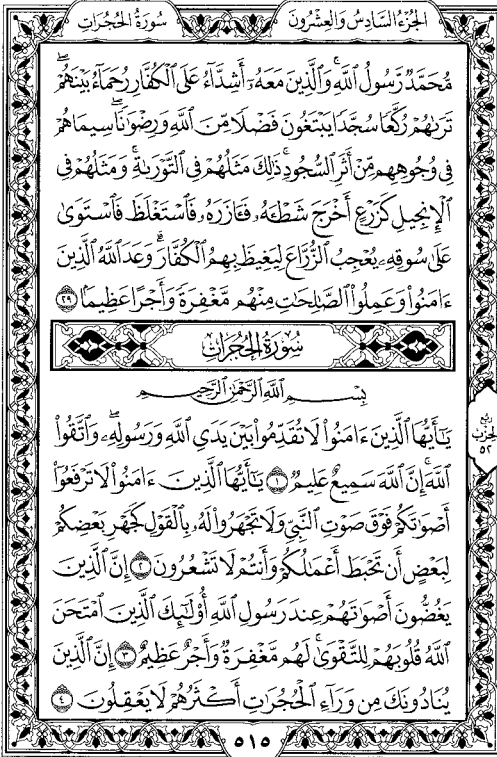 سُورَةُ الحُجُرَاتِ
الجُزْءُ السَّادِسُ وَالعِشْرُونَ
مُّحَمَّدٌ رَّسُولُ ٱللَّهِ ۚ وَٱلَّذِينَ مَعَهُۥٓ أَشِدَّآءُ عَلَى ٱلْكُفَّارِ رُحَمَآءُ بَيْنَهُمْ ۖ
تَرَىٰهُمْ رُكَّعًا سُجَّدًا يَبْتَغُونَ فَضْلًا مِّنَ ٱللَّهِ وَرِضْوَٰنًا ۖ سِيمَاهُمْ
فِى وُجُوهِهِم مِّنْ أَثَرِ ٱلسُّجُودِ ۚ ذَٰلِكَ مَثَلُهُمْ فِى ٱلتَّوْرَىٰةِ ۚ وَمَثَلُهُمْ فِى
ٱلْإِنجِيلِ كَزَرْعٍ أَخْرَجَ شَطْـَٔهُۥ فَـَٔازَرَهُۥ فَٱسْتَغْلَظَ فَٱسْتَوَىٰ
عَلَىٰ سُوقِهِۦ يُعْجِبُ ٱلزُّرَّاعَ لِيَغِيظَ بِهِمُ ٱلْكُفَّارَ ۗ وَعَدَ ٱللَّهُ ٱلَّذِينَ
ءَامَنُوا۟ وَعَمِلُوا۟ ٱلصَّـٰلِحَـٰتِ مِنْهُم مَّغْفِرَةً وَأَجْرًا عَظِيمًۢا ٢٩
سُورَةُ الحُجُرَاتِ
بِسْمِ ٱللَّهِ ٱلرَّحْمَـٰنِ ٱلرَّحِيمِ
يَـٰٓأَيُّهَا ٱلَّذِينَ ءَامَنُوا۟ لَا تُقَدِّمُوا۟ بَيْنَ يَدَىِ ٱللَّهِ وَرَسُولِهِۦ ۖ وَٱتَّقُوا۟
ٱللَّهَ ۚ إِنَّ ٱللَّهَ سَمِيعٌ عَلِيمٌ ١ يَـٰٓأَيُّهَا ٱلَّذِينَ ءَامَنُوا۟ لَا تَرْفَعُوٓا۟
أَصْوَٰتَكُمْ فَوْقَ صَوْتِ ٱلنَّبِىِّ وَلَا تَجْهَرُوا۟ لَهُۥ بِٱلْقَوْلِ كَجَهْرِ بَعْضِكُمْ
لِبَعْضٍ أَن تَحْبَطَ أَعْمَـٰلُكُمْ وَأَنتُمْ لَا تَشْعُرُونَ ٢ إِنَّ ٱلَّذِينَ
يَغُضُّونَ أَصْوَٰتَهُمْ عِندَ رَسُولِ ٱللَّهِ أُو۟لَـٰٓئِكَ ٱلَّذِينَ ٱمْتَحَنَ
ٱللَّهُ قُلُوبَهُمْ لِلتَّقْوَىٰ ۚ لَهُم مَّغْفِرَةٌ وَأَجْرٌ عَظِيمٌ ٣ إِنَّ ٱلَّذِينَ
يُنَادُونَكَ مِن وَرَآءِ ٱلْحُجُرَٰتِ أَكْثَرُهُمْ لَا يَعْقِلُونَ ٤
ربع
الحزب
٥٢
٥١٥